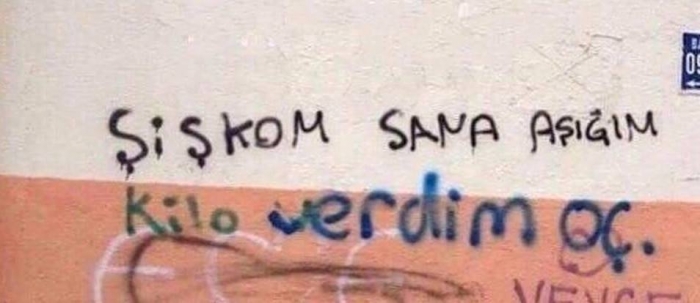 ŞiŞKOM SANA AŞIĞIM
Kilo verdim oç.